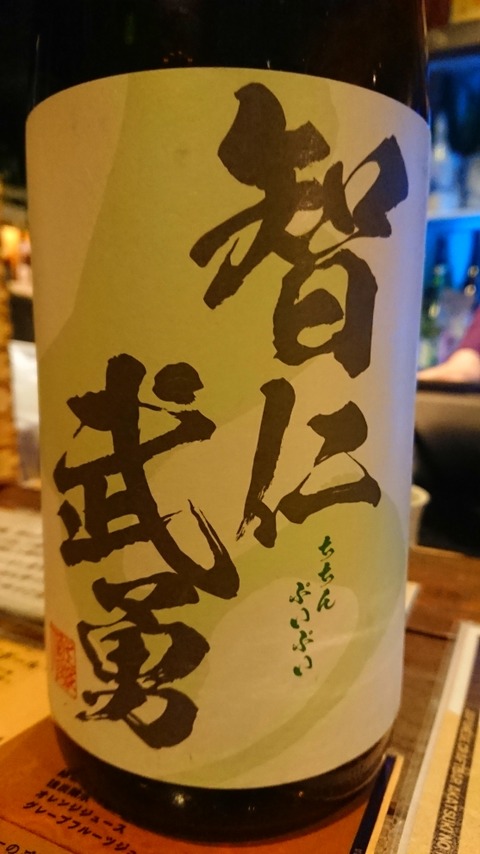 智仁
武勇
ちちん
ぷいぷい
オレンジジュース
グレープフルーツジュ